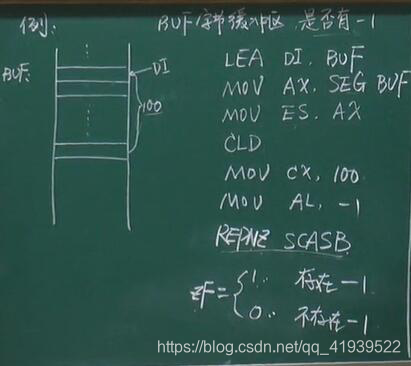 例: BUF字节缓冲区 是否有-1
BUF:
DI
100
LEA DI, BUF
MOV AX, SEG BUF
MOV ES, AX
CLD
MOV CX, 100
MOV AL, -1
REPNZ SCASB
ZF= { 1.. 存在-1
0.. 不存在-1
https://blog.csdn.net/qq_41939522